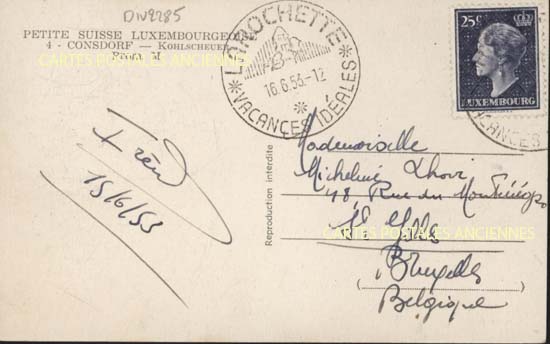 DIV2285
PETITE SUISSE LUXEMBOURGEOISE
4 - CONSDORF — KOHLSCHEUER
CARTES POSTALES ANCIENNES
LAROCHETTE
16.6.53.-12
* VACANCES IDÉALES *
25c
LUXEMBOURG
Fréd
15/6/53
Reproduction interdite
Mademoiselle
Micheline
48 Rue du Monténégro
St Gilles
CARTES POSTALES ANCIENNES
Bruxelles
Belgique